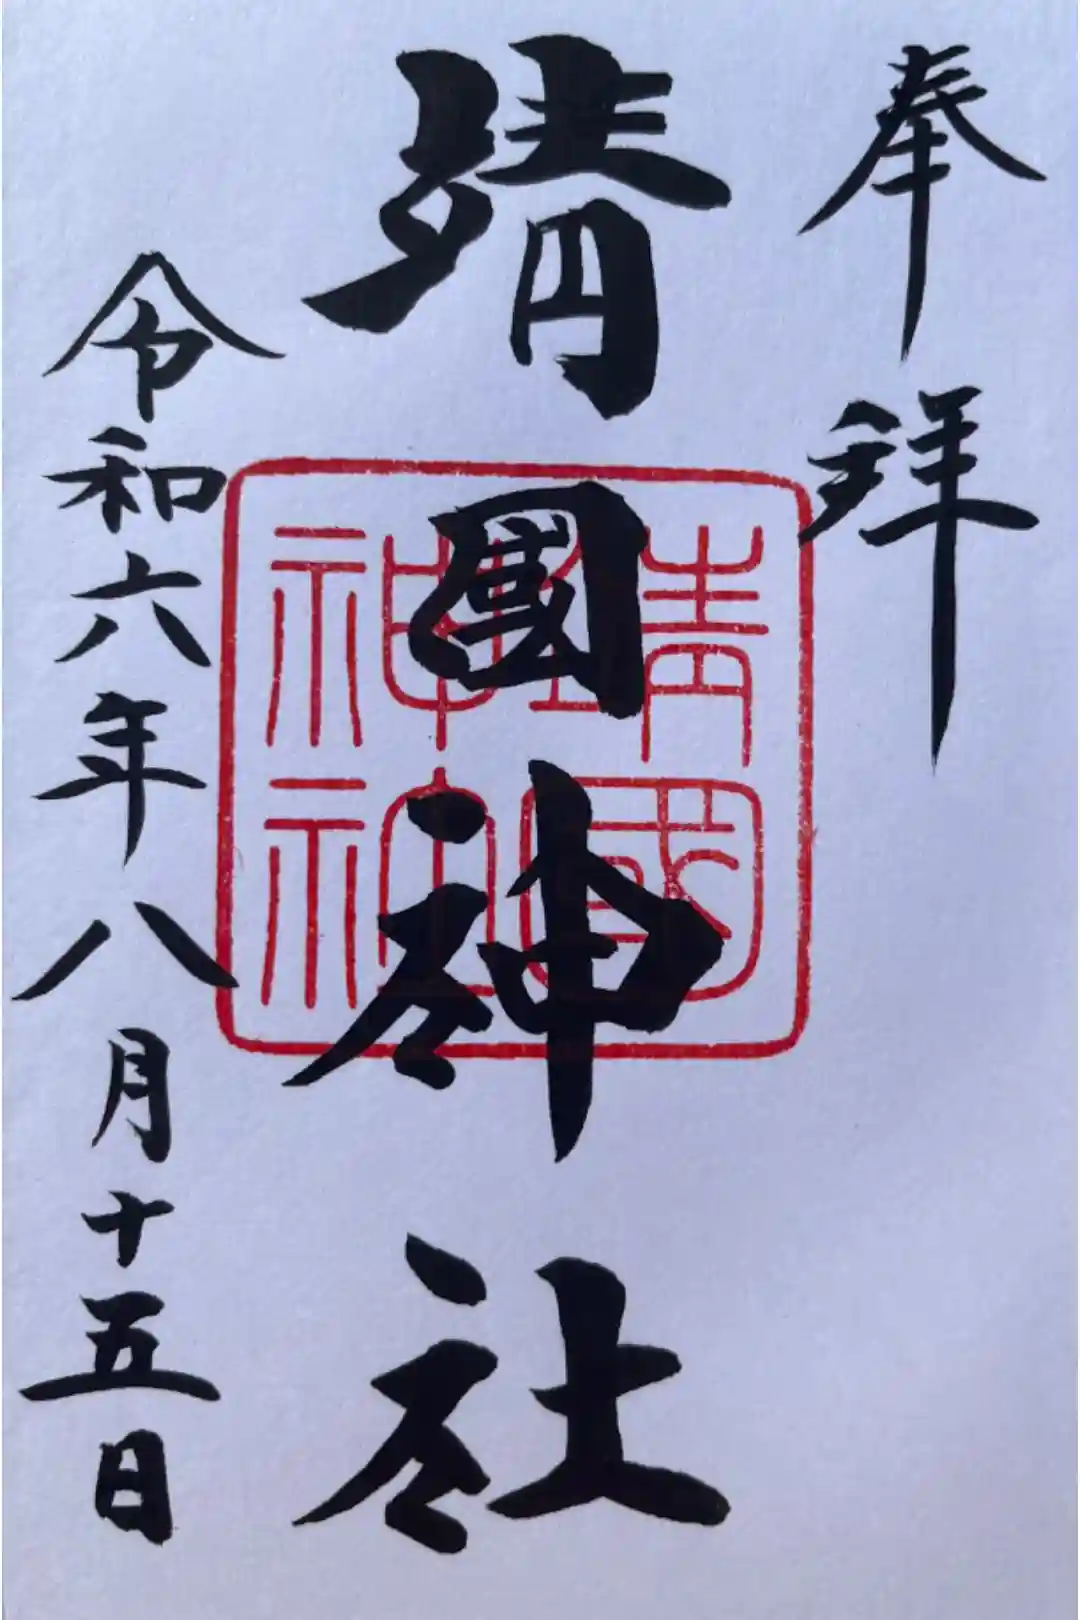 奉拝
靖國神社
令和六年八月十五日
靖國
神社